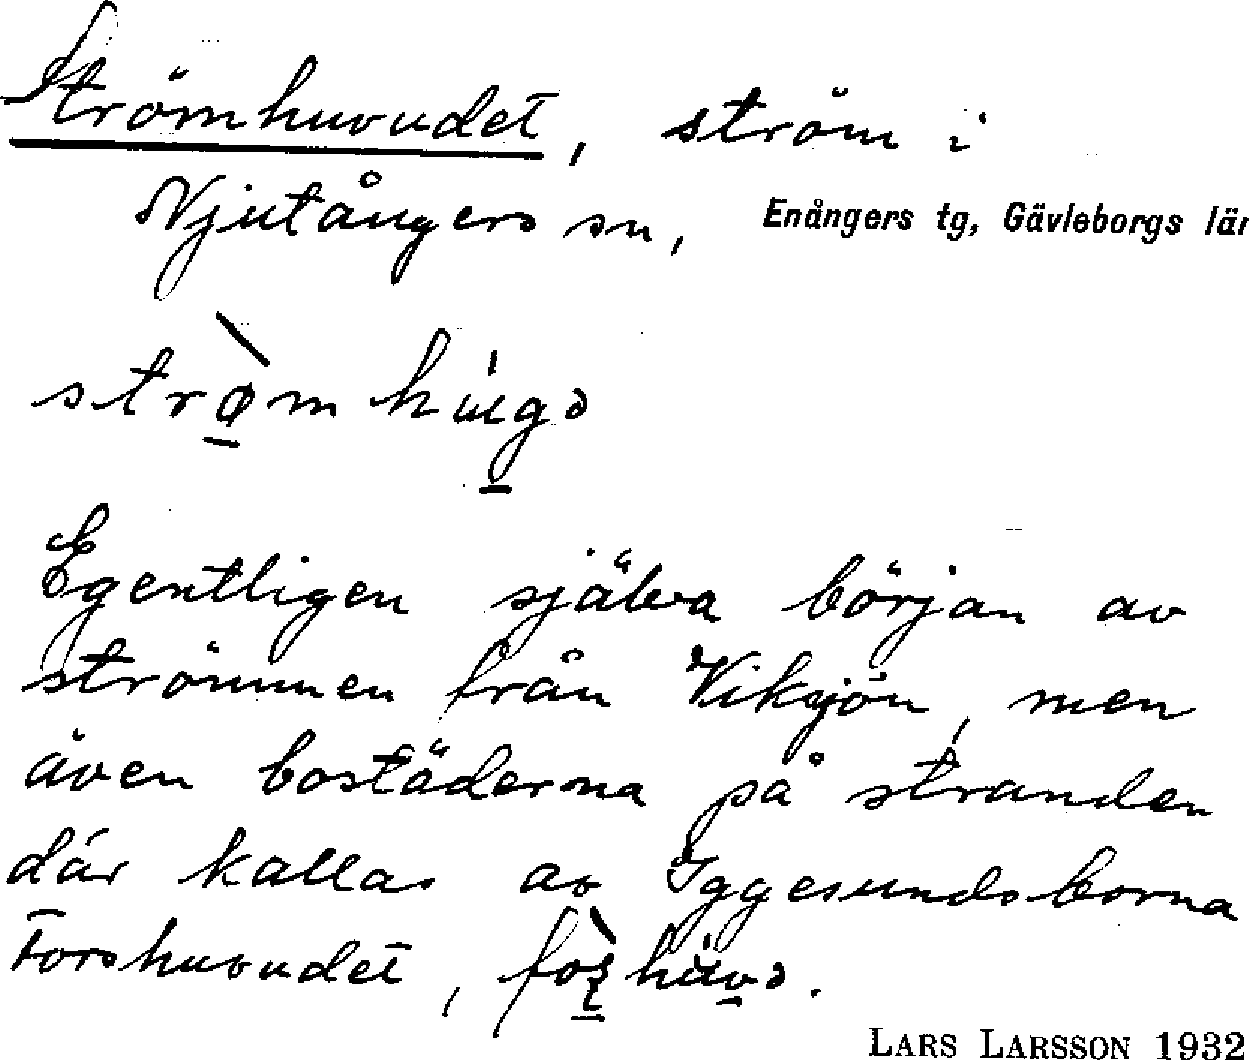 Strömhuvudet, ström i
Njutångers sn, Enångers tg, Gävleborgs län
strømhugə
Egentligen själva början av
strömmen från Viksjön, men
även bostäderna på stranden
där kallas av Iggesundsborna
Forshuvudet, foshuvə.
LARS LARSSON 1932